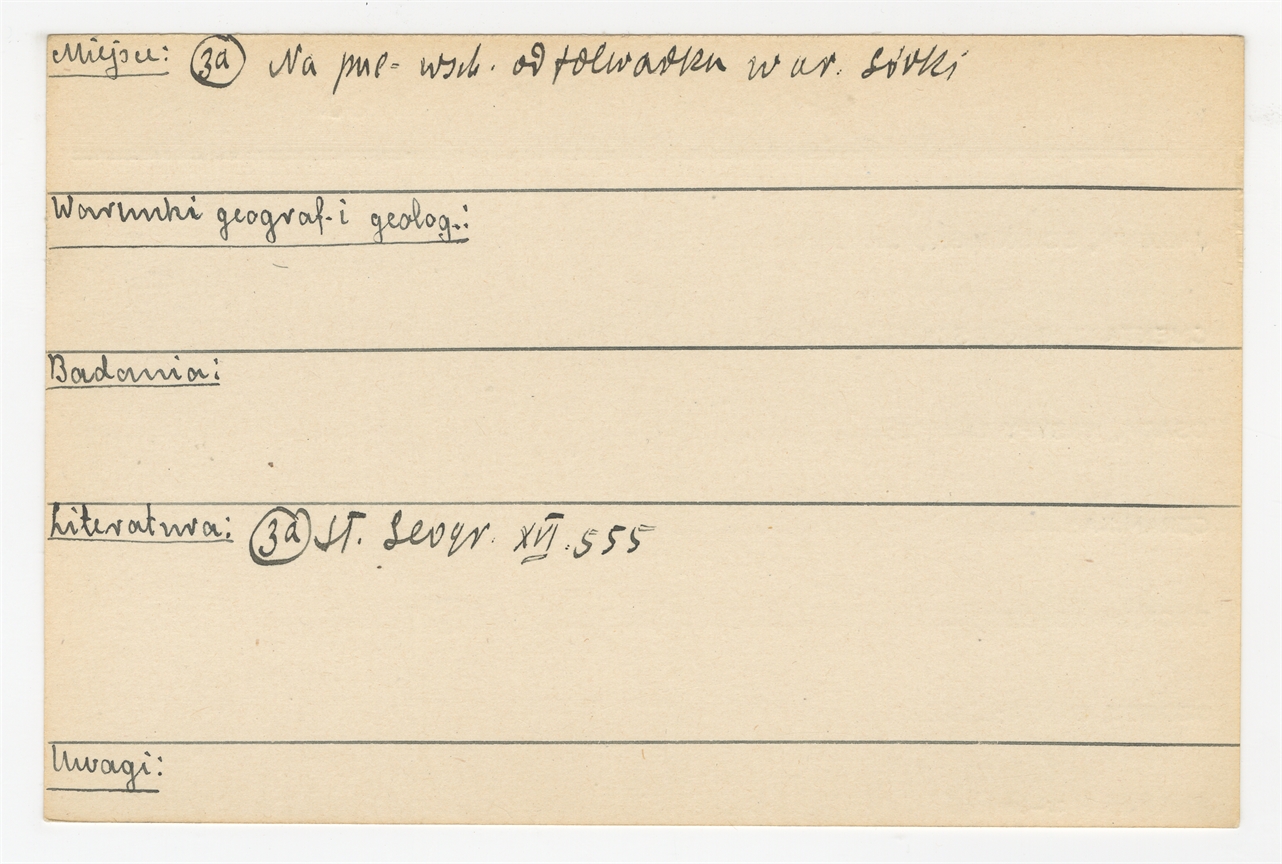 Miejsce: 3a Na płn-wsch. od folwarku w ur. Górki
Warunki geograf. i geolog.:
Badania:
Literatura: 3a Sł. Geogr. XVI. 555
Uwagi: